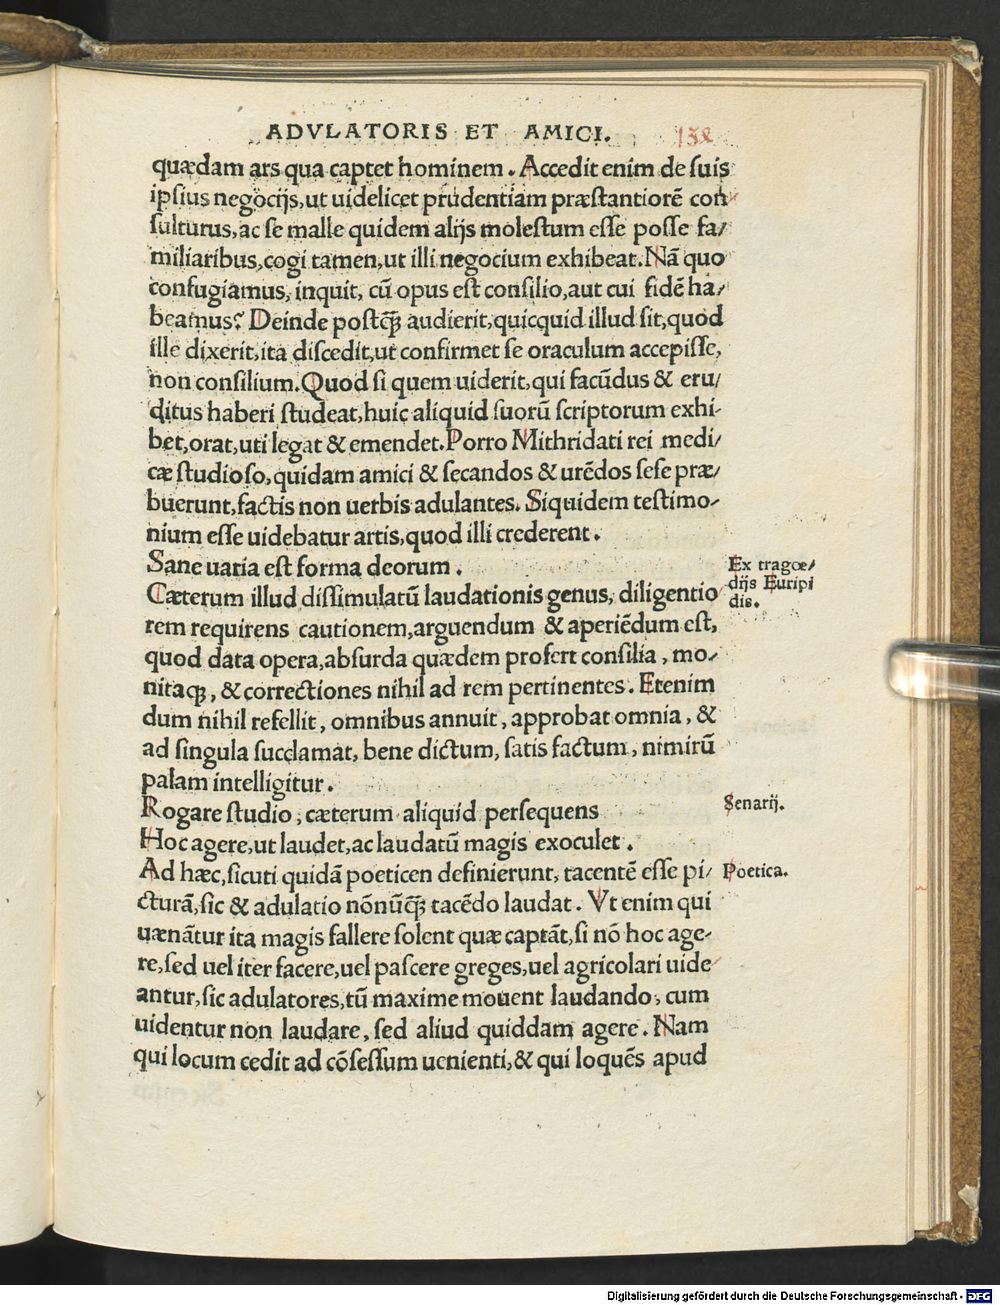 ADVLATORIS ET AMICI. 138
quædam ars qua captet hominem. Accedit enim de suis
ipsius negocijs, ut uidelicet prudentiam præstantiorē con⸗
sulturus, ac se malle quidem alijs molestum esse posse fa⸗
miliaribus, cogi tamen, ut illi negocium exhibeat. Nā quo
confugiamus, inquit, cū opus est consilio, aut cui fidē ha⸗
beamus? Deinde postꝗ̃ audierit, quicquid illud sit, quod
ille dixerit, ita discedit, ut confirmet se oraculum accepisse,
non consilium. Quod si quem uiderit, qui facūdus & eru⸗
ditus haberi studeat, huic aliquid suorū scriptorum exhi⸗
bet, orat, uti legat & emendet. Porro Mithridati rei medi⸗
cæ studioso, quidam amici & secandos & urēdos sese præ⸗
buerunt, factis non uerbis adulantes. Siquidem testimo⸗
nium esse uidebatur artis, quod illi crederent.
Sane uaria est forma deorum.
Ex tragœ⸗
dijs Euripi
dis.
Cæterum illud dissimulatū laudationis genus, diligentio⸗
rem requirens cautionem, arguendum & aperiēdum est,
quod data opera, absurda quædem profert consilia, mo⸗
nitaq;, & correctiones nihil ad rem pertinentes. Etenim
dum nihil refellit, omnibus annuit, approbat omnia, &
ad singula succlamat, bene dictum, satis factum, nimirū
palam intelligitur.
Rogare studio, cæterum aliquid persequens
Senarij.
Hoc agere, ut laudet, ac laudatū magis exoculet.
Ad hæc, sicuti quidā poeticen definierunt, tacentē esse pi⸗
Poetica.
cturā, sic & adulatio nōnūꝗ̃ tacēdo laudat. Vt enim qui
uænātur ita magis fallere solent quæ captāt, si nō hoc age⸗
re, sed uel iter facere, uel pascere greges, uel agricolari uide⸗
antur, sic adulatores, tū maxime mouent laudando, cum
uidentur non laudare, sed aliud quiddam agere. Nam
qui locum cedit ad cōsessum uenienti, & qui loquēs apud
Digitalisierung gefördert durch die Deutsche Forschungsgemeinschaft - DFG